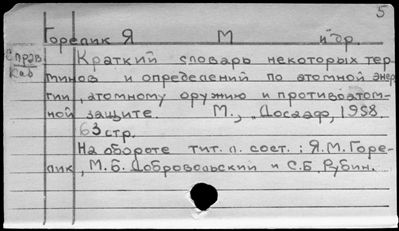 5
Горелик Я М и др.
Справ Краткий словарь некоторых тер-
Каб минов и определений по атомной энер-
гии, атомному оружию и противоатом-
ной защите. М., Досааф, 1958.
63 стр.
На обороте тит. л. сост.: Я.М. Горе-
лик, М.Б. Добровольский и С.Б. Рубин.